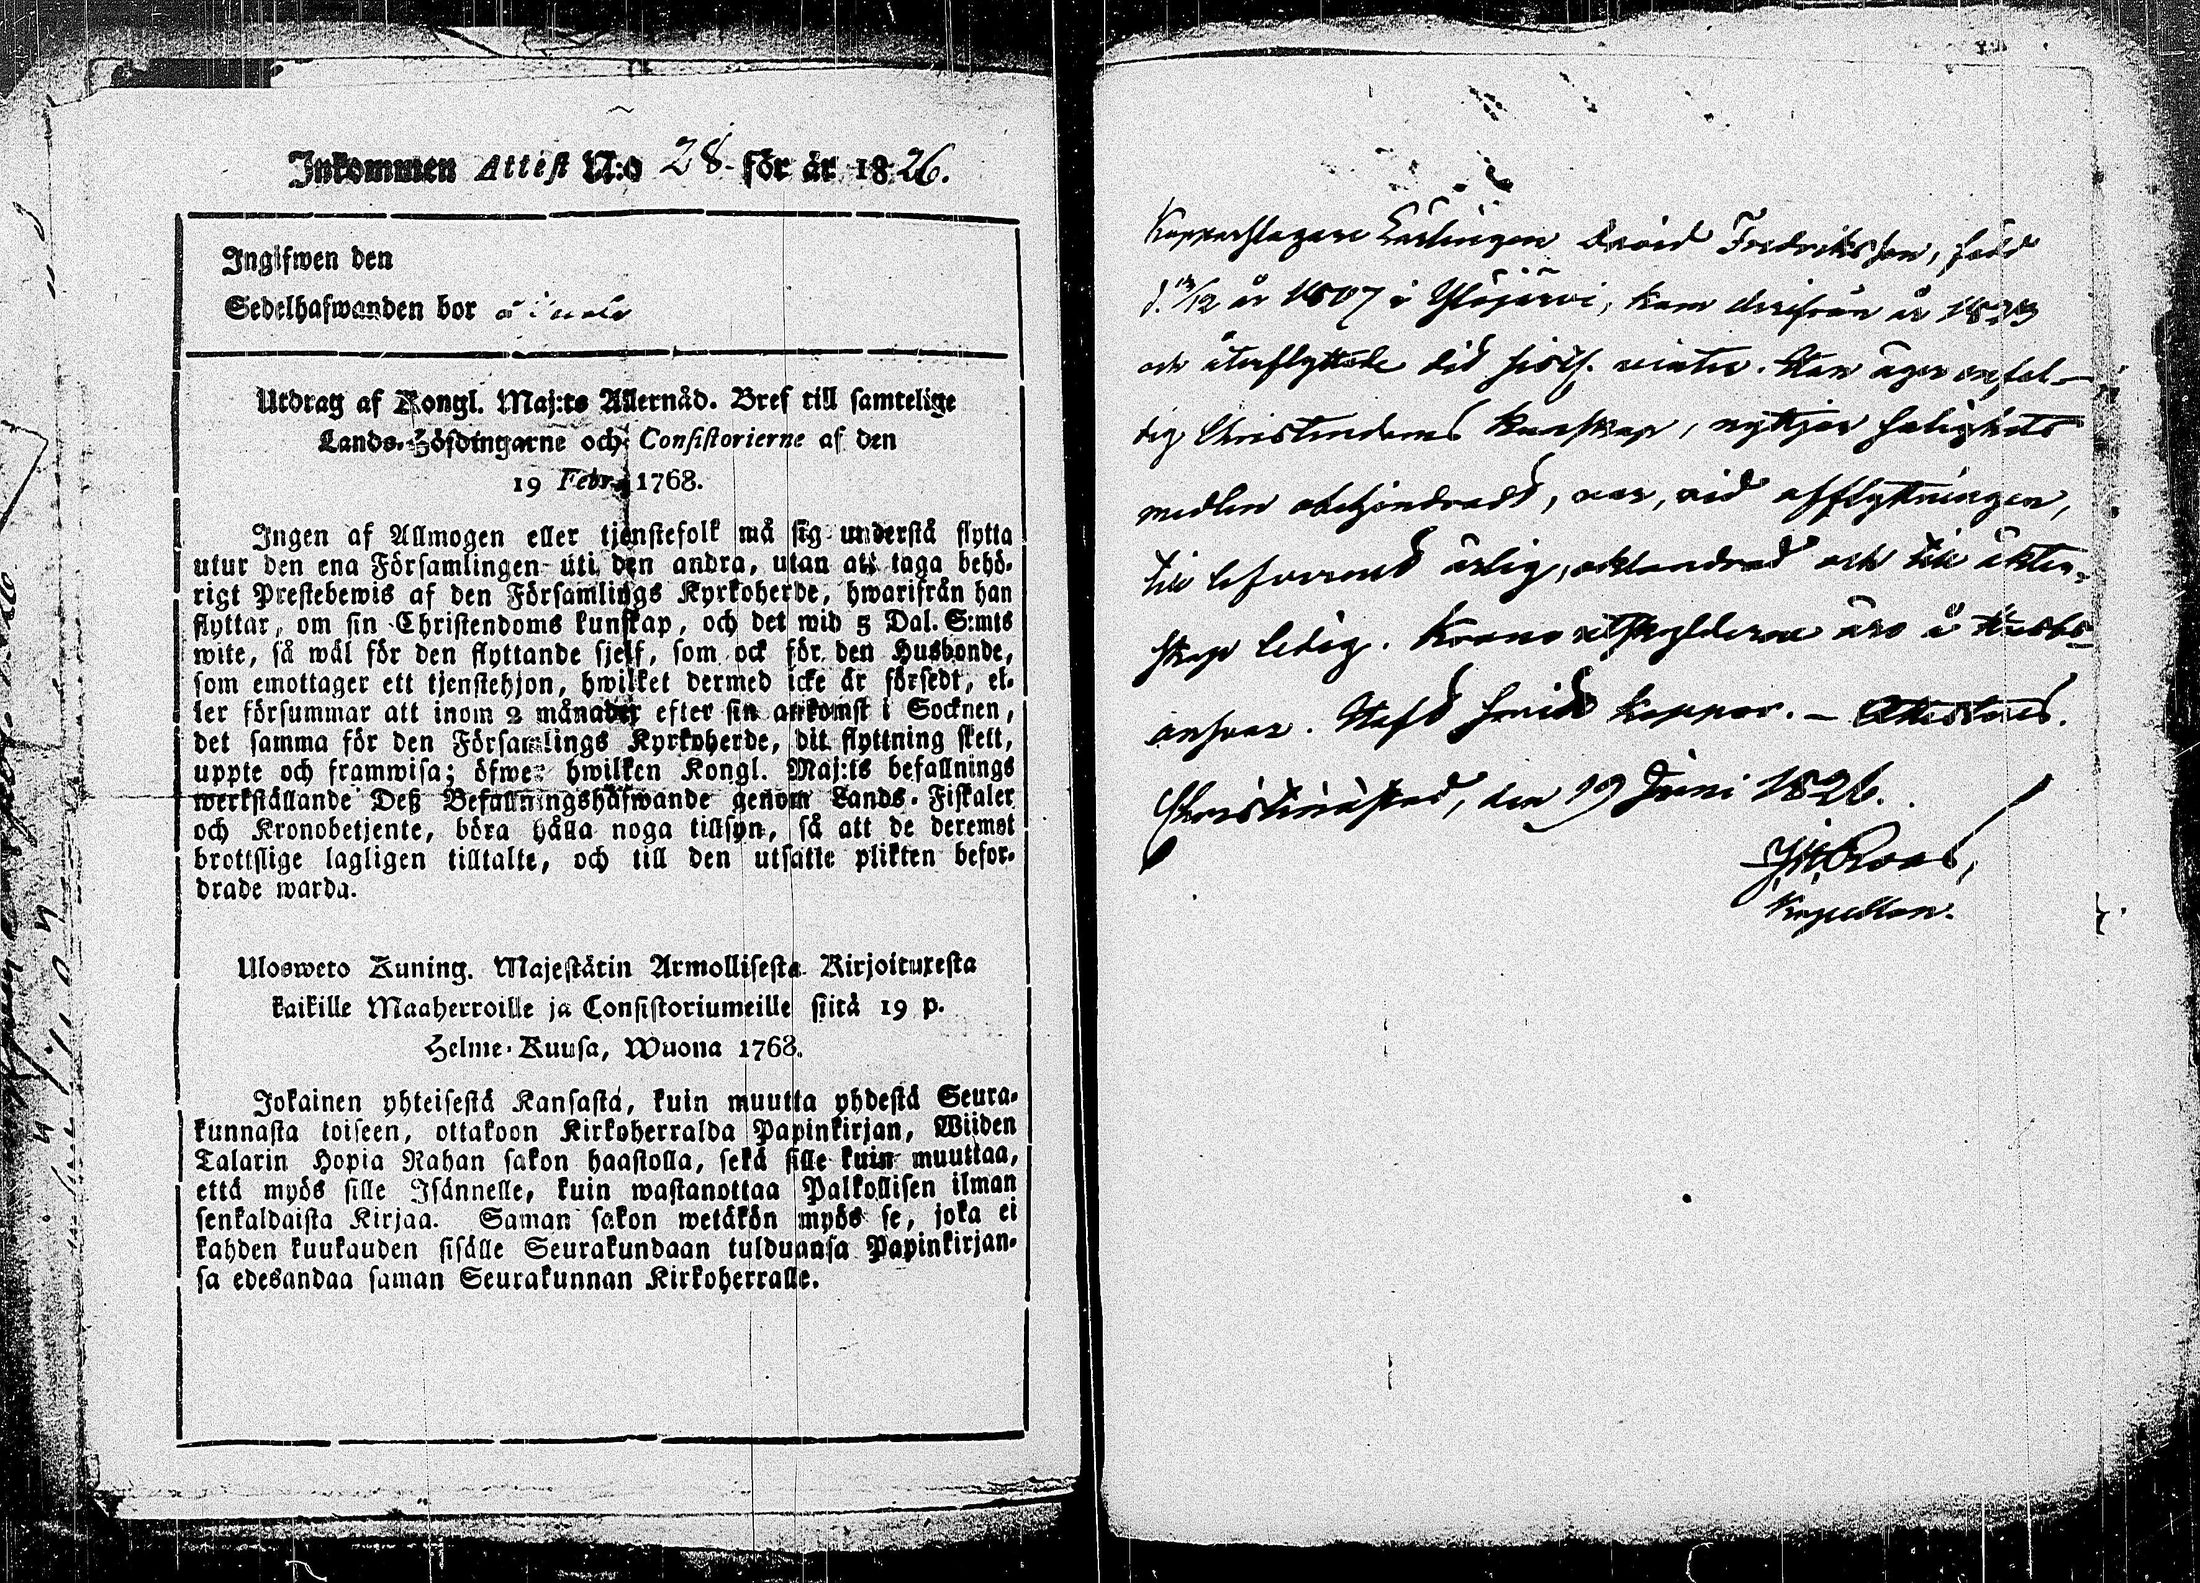 Inkommen Attest N:o 28. för år 1826.
Ingifwen den
Sedelhafwanden bor å
Utdrag af Kongl. Maj:ts Allernåd. Bref till samtelige
Lands-Höfdingarne och Consistorierne af den
19 Febr. 1768.
Ingen af Allmogen eller tjenstefolk må sig understå flytta
utur den ena Församlingen uti den andra, utan att taga behö-
rigt Prestebewis af den Församlings Kyrkoherde, hwarifrån han
flyttar, om sin Christendoms kunskap, och det wid 5 Dal. S:mts
wite, så wäl för den flyttande sjelf, som ock för den Husbonde,
som emottager ett tjenstehjon, hwilket dermed icke är försedt, el-
ler försummar att inom 2 månader efter sin ankomst i Socknen,
det samma för den Församlings Kyrkoherde, dit flyttning skett,
uppte och framwisa; öfwer hwilken Kongl. Maj:ts befallnings
werkställande Deß Befallningshafwande genom Lands-Fiskaler
och Kronobetjente, böra hålla noga tillsyn, så att de deremot
brottslige lagligen tilltalte, och till den utsatte plikten befor-
drade warda.
Ulosweto Kuning. Majestätin Armollisesta Kirjoituxesta
kaikille Maaherroille ja Consistoriumeille siitä 19 p.
Helme-Kuusa, Wuona 1768.
Jokainen yhteisestä Kansasta, kuin muutta yhdestä Seura-
kunnasta toiseen, ottakoon Kirkoherralda Papinkirjan, Wiiden
Talarin Hopia Rahan sakon haastolla, sekä sille kuin muuttaa,
että myös sille Isännelle, kuin wastanottaa Palkollisen ilman
senkaldaista Kirjaa. Saman sakon wetäkön myös se, joka ei
kahden kuukauden sisälle Seurakundaan tulduansa Papinkirjan-
sa edesandaa saman Seurakunnan Kirkoherralle.
Kopparslagare Lärlingen David Fredriksson, född
d. /12 år 1807 i Ylöjärvi, kom derifrån år 1823
och återflyttade dit sistl. vinter. Han äger enfal-
dig Christendoms kunskap, nyttjar salighets
medlen obehindradt, var, vid afflyttningen,
till lefvernet ärlig, oklandrad och till äkten-
skap ledig. Krono utskylderne äro å Husbs
ansvar. Haft skydds koppor. – Attesteras.
Christinæstad, den 19 Juni 1826.
Roos,
Kapellan.